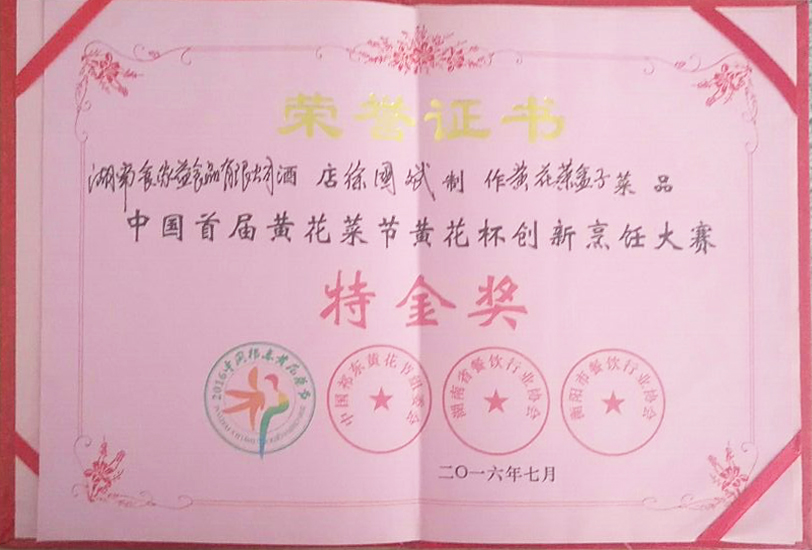 荣誉证书
湖南食家益食品有限公司酒店徐國斌制作黄花菜盒子菜品
中国首届黄花菜节黄花杯创新烹饪大赛
特金奖
2016中国祁东黄花菜节
中国祁东黄花节组委会
湖南省餐饮行业协会
衡阳市餐饮行业协会
二〇一六年七月